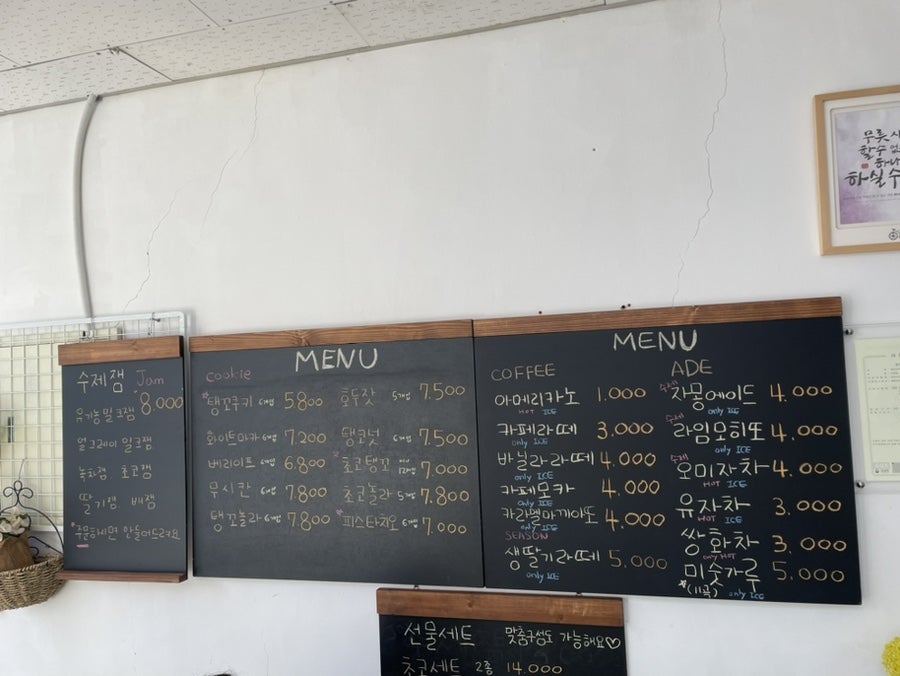 수제잼 Jam
유기농밀크잼 8.000
얼그레이 밀크잼
녹차잼 초코잼
딸기잼 배잼
*주문하시면 만들어드려요
MENU
cookie
*탱꼬쿠키 6개입 5800 호두잣 5개입 7.500
화이트마카 6개입 7.200 탱고넛 6개입 7.500
베리이트 6개입 6.800 *초코탱꼬 12개입 7.000
무시칸 6개입 7.800 초코놀라 5개입 7.800
탱꼬놀라 6개입 7.800 *피스타치오 6개입 7.000
MENU
COFFEE
아메리카노 1.000
HOT ICE
카페라떼 3.000
only ICE
바닐라라떼 4.000
only ICE
카페모카 4.000
only ICE
카라멜마끼아또 4.000
only ICE
SEASON
생딸기라떼 5.000
only ICE
ADE
수제 자몽에이드 4.000
only ICE
수제 라임모히또 4.000
only ICE
수제 오미자차 4.000
HOT ICE
유자차 3.000
HOT ICE
쌍화차 3.000
only HOT
미숫가루 5.000
*(11곡) only ICE
선물세트 맞춤구성도 가능해요♡
초코세트 2종 14.000
무릇 사
할 수 없
하나
하실 수